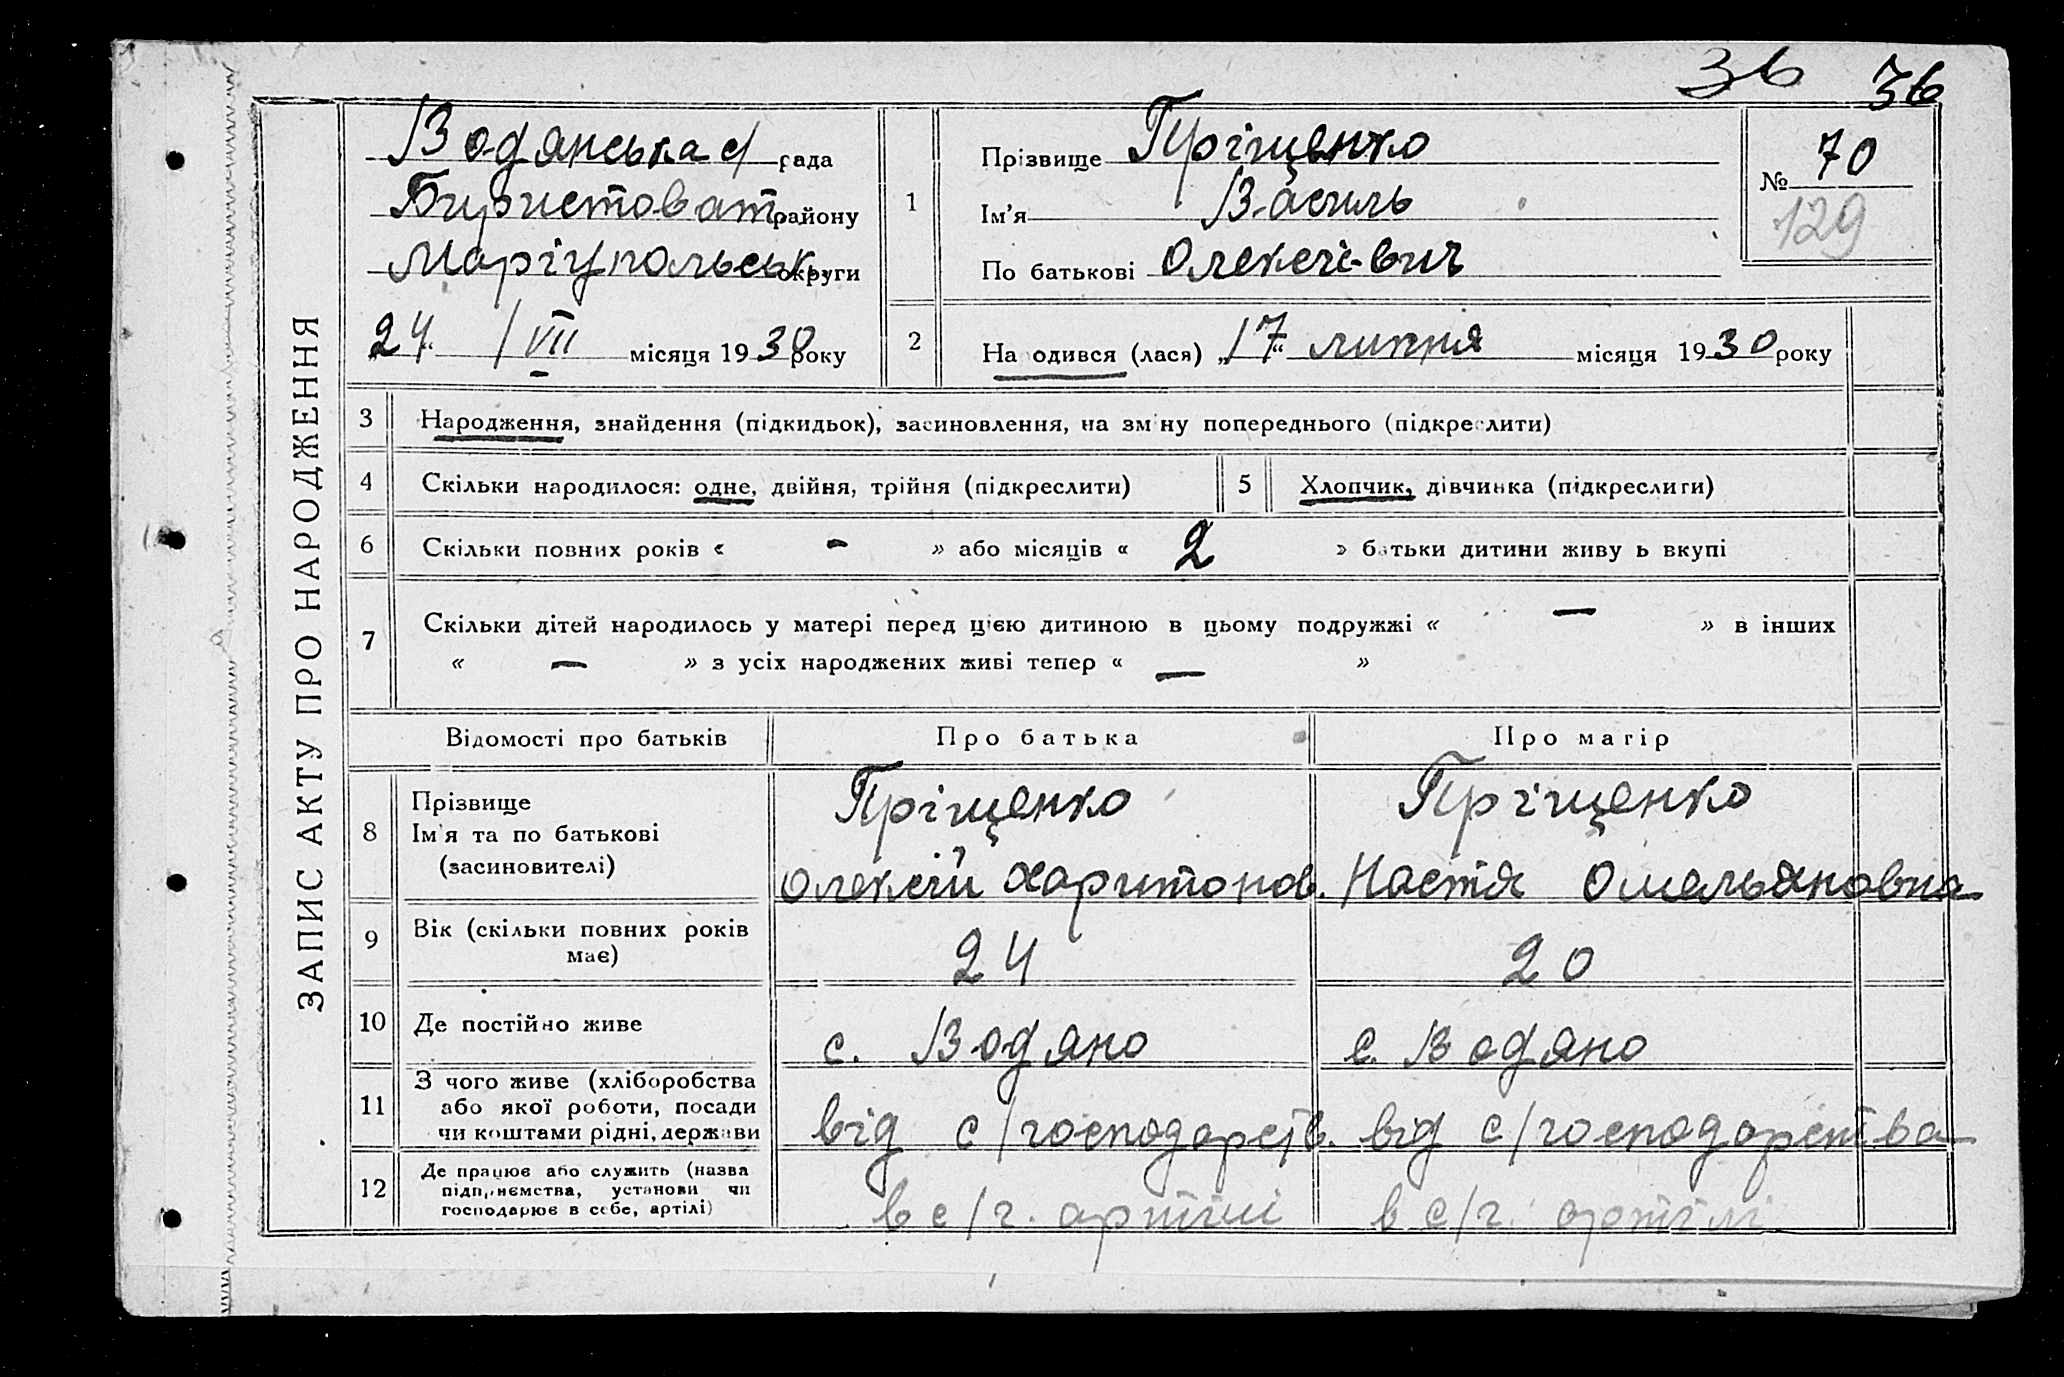 36 36
ЗАПИС АКТУ ПРО НАРОДЖЕННЯ
Водянська с/ рада
району
Маріупольськ. округи
24 /VII місяця 1930 року
1
Прізвище Пріщенко
Ім'я Василь
По батькові Олексієвич
№ 70
129
2 Народився (лася) „17“ липня місяця 1930 року
3 Народження, знайдення (підкидьок), засиновлення, на зміну попереднього (підкреслити)
4 Скільки народилося: одне, двійня, трійня (підкреслити) 5 Хлопчик, дівчинка (підкреслити)
6 Скільки повних років « - » або місяців « 2 » батьки дитини живуть вкупі
7 Скільки дітей народилось у матері перед цією дитиною в цьому подружжі « — » в інших
« — » з усіх народжених живі тепер « — »
Відомості про батьків Про батька Про матір
8 Прізвище Пріщенко Пріщенко
Ім'я та по батькові
(засиновителі) Олексій Харитонов. Настя Омельяновна
9 Вік (скільки повних років
має) 24 20
10 Де постійно живе с. Водяно с. Водяно
11 З чого живе (хліборобства
або якої роботи, посади
чи коштами рідні, держави від с/господарств. від с/господарства
12 Де працює або служить (назва
підприємства, установи чи
господарює в себе, артілі) в с/г. артілі в с/г. артілі